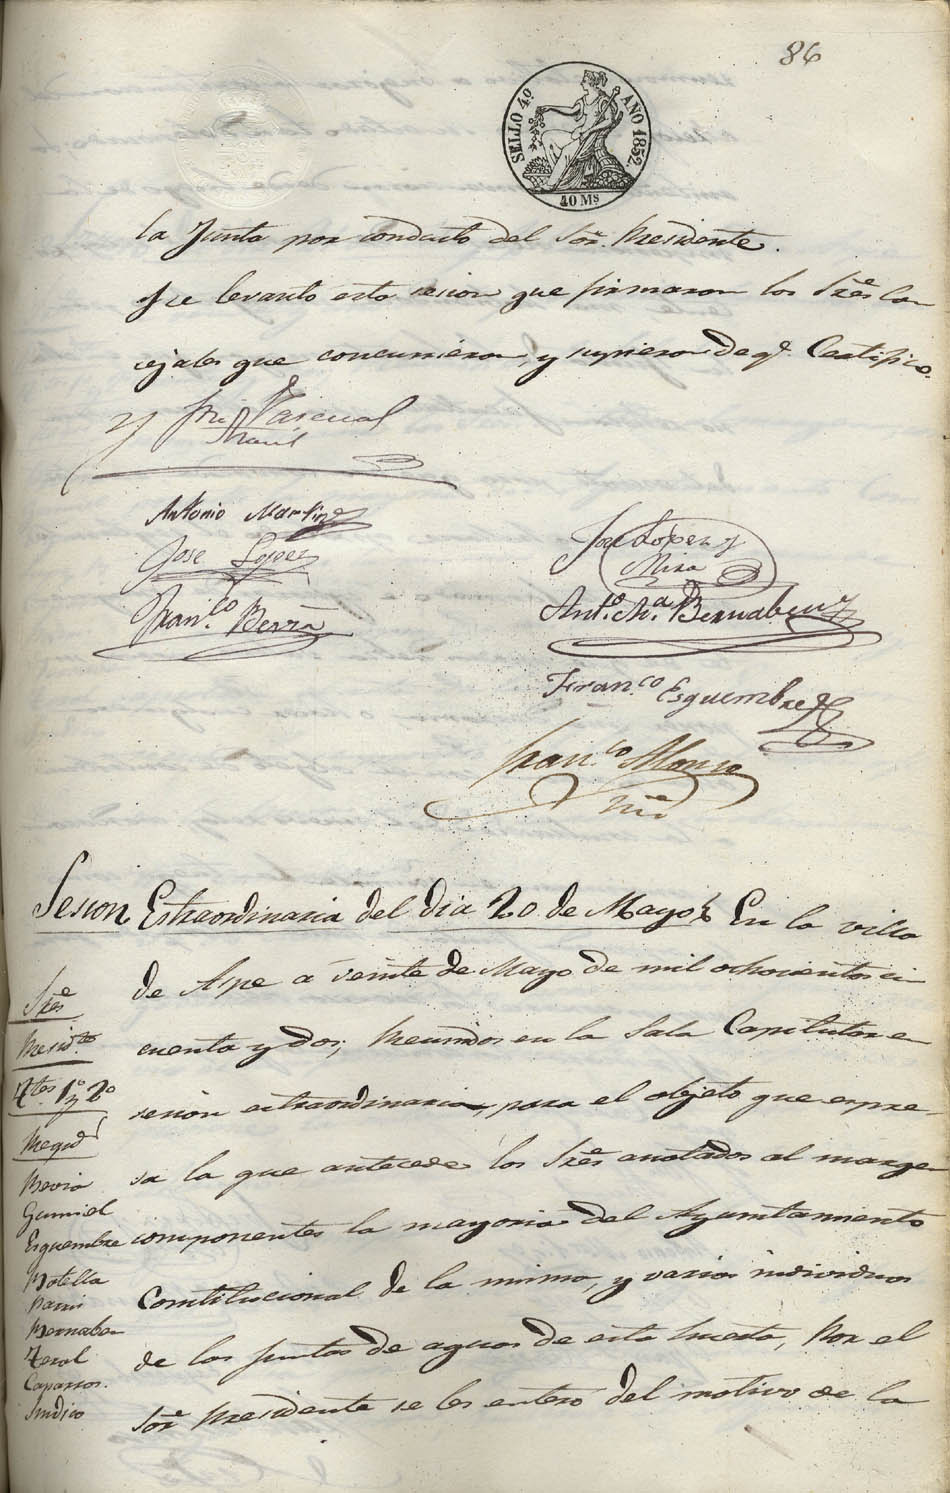 86
SELLO 4º AÑO 1852.
40 Ms
la Junta por conducto del Sor. Presidente.
Y se levanto esta sesion que firmaron los Sres Con
cejales que concurrieron, y supieron de qe. Certifico.
Pascual
Antonio Martinez
Jose Lopez y
Jose Lopez
Mira
Franco. Bevia
Anto. Ma. Bernabeu
Franco Esquembre
Franco. Alonso
Srio
Sesion Estraordinaria del dia 20 de Mayo. En la villa
de Aspe á veinte de Mayo de mil ochocientos cin
cuenta y dos; Reunidos en la Sala Capitular en
sesion estraordinaria, para el objeto que espre-
sa la que antecede los Sres anotados al margen
componentes la mayoria del Ayuntamiento
Constitucional de la misma, y varios individuos
de las juntas de aguas de esta huerta, Por el
Sor Presidente se les enteró del motivo de la
Sres
Presidte
Ttes. 1º y 2º
Regid
Bevia
Gumiel
Esquembre
Botella
Pavia
Bernabeu
Terol
Caparros.
Sindico